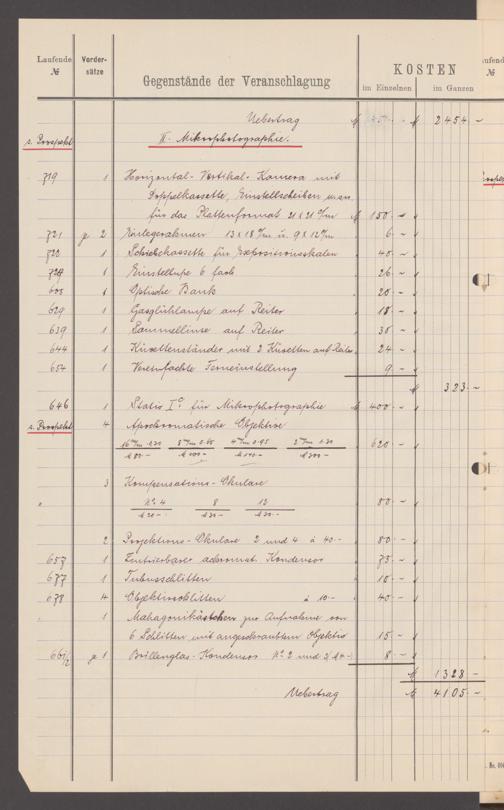 Laufende № Vorder-sätze Gegenstände der Veranschlagung KOSTEN
im Einzelnen im Ganzen
Uebertrag M 2454 -
s. Prospekt II. Mikrophotographie.
719 1 Horizontal-Vertikal-Kamera mit
Doppelkassette, Einstellscheiben
für das Plattenformat 21x21 c/m M 150 -
721 je 2 Einlegerahmen 13x18 c/m u. 9x12 c/m 6 -
720 1 Schiebekassette für Expositionsskalen 40 -
1 Einstellupe 6 fach 26 -
1 Optische Bank 20 -
629 1 Gasglühlampe auf Reiter 18 -
639 1 Sammellinse auf Reiter 30 -
644 1 Küvettenständer mit 2 Küvetten auf Reiter 24 -
654 1 Vereinfachte Ferneinstellung 9 -
M 323 -
646 1 Stativ Ic für Mikrophotographie M 400 -
s. Prospekt 4 Apochromatische Objektive
16 m/m 0.30 8 m/m 0.65 4 m/m 0.95 2 m/m 1.30 620 -
3 Kompensations-Okulare
" No. 4 8 12 80 -
M 20 - M 30 - M 30 -
2 Projektions-Okulare 2 und 4 à 40 - 80 -
657 1 Zentrierbarer achromat. Kondensor 75 -
677 1 Tubusschlitten 10 -
678 4 Objektivschlitten à 10 - 40 -
1 Mahagonikästchen zur Aufnahme von
6 Schlitten mit angeschraubtem Objektiv 15 -
je 1 Brillenglas-Kondensor No. 2 und 8 -
M 1328 -
Uebertrag M 4105 -